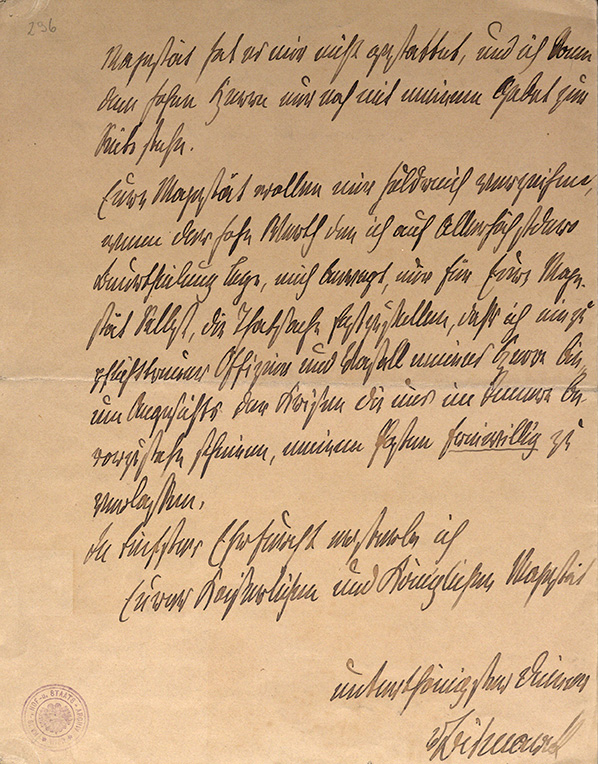 236
Majestät hat es mir nicht gestattet, und ich kann
dem hohen Herrn nur noch mit meinem Gebet zur
Seite stehn.
Eure Majestät wollen mir huldreich verzeihn,
wenn der hohe Werth den ich auf Allerhöchstdero
Beurtheilung lege, mich bewegt, nur für Eure Maje-
stät Selbst, die Thatsache festzustellen, daß ich ein zu
pflichttreuer Offizier und Vasall meines Herrn bin
um Angesichts der Krisen die uns im Innern be-
vorzustehn scheinen, meinen Posten freiwillig zu
verlassen.
In tiefster Ehrfurcht ersterbe ich
Eurer Kaiserlichen und Königlichen Majestät
unterthänigster Diener
v Bismarck
HOF- u. STAATS-